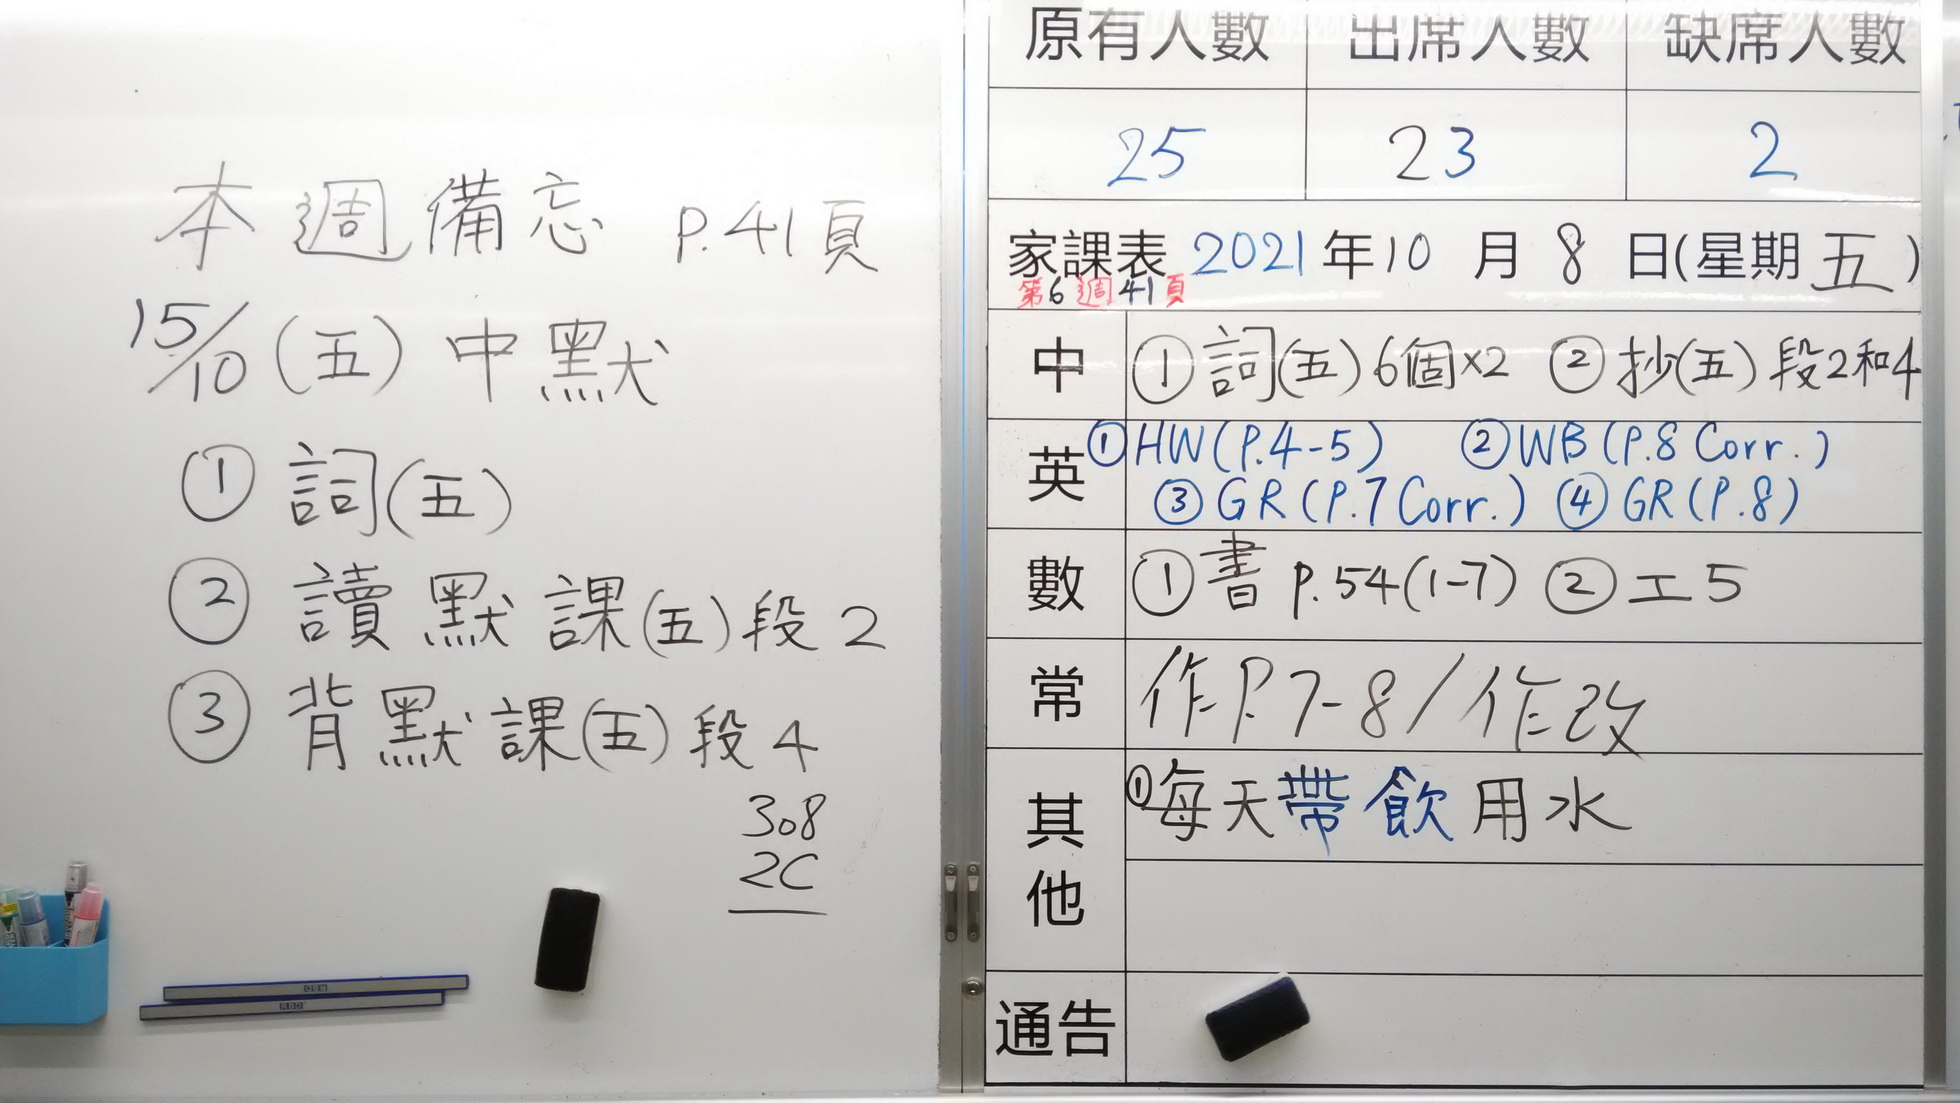 本週備忘 P.41頁
15/10(五)中默
① 詞(五)
② 讀默課(五)段2
③ 背默課(五)段4
308
2C
原有人數 出席人數 缺席人數
25 23 2
家課表 2021年10月8日(星期五)
第6週41頁
中 ①詞(五)6個×2 ②抄(五)段2和4
英 ①HW(P.4-5) ②WB(P.8 Corr.)
③GR(P.7 Corr.) ④GR(P.8)
數 ①書 P.54(1-7) ②工5
常 作P.7-8/作改
其他 ①每天帶飲用水
通告